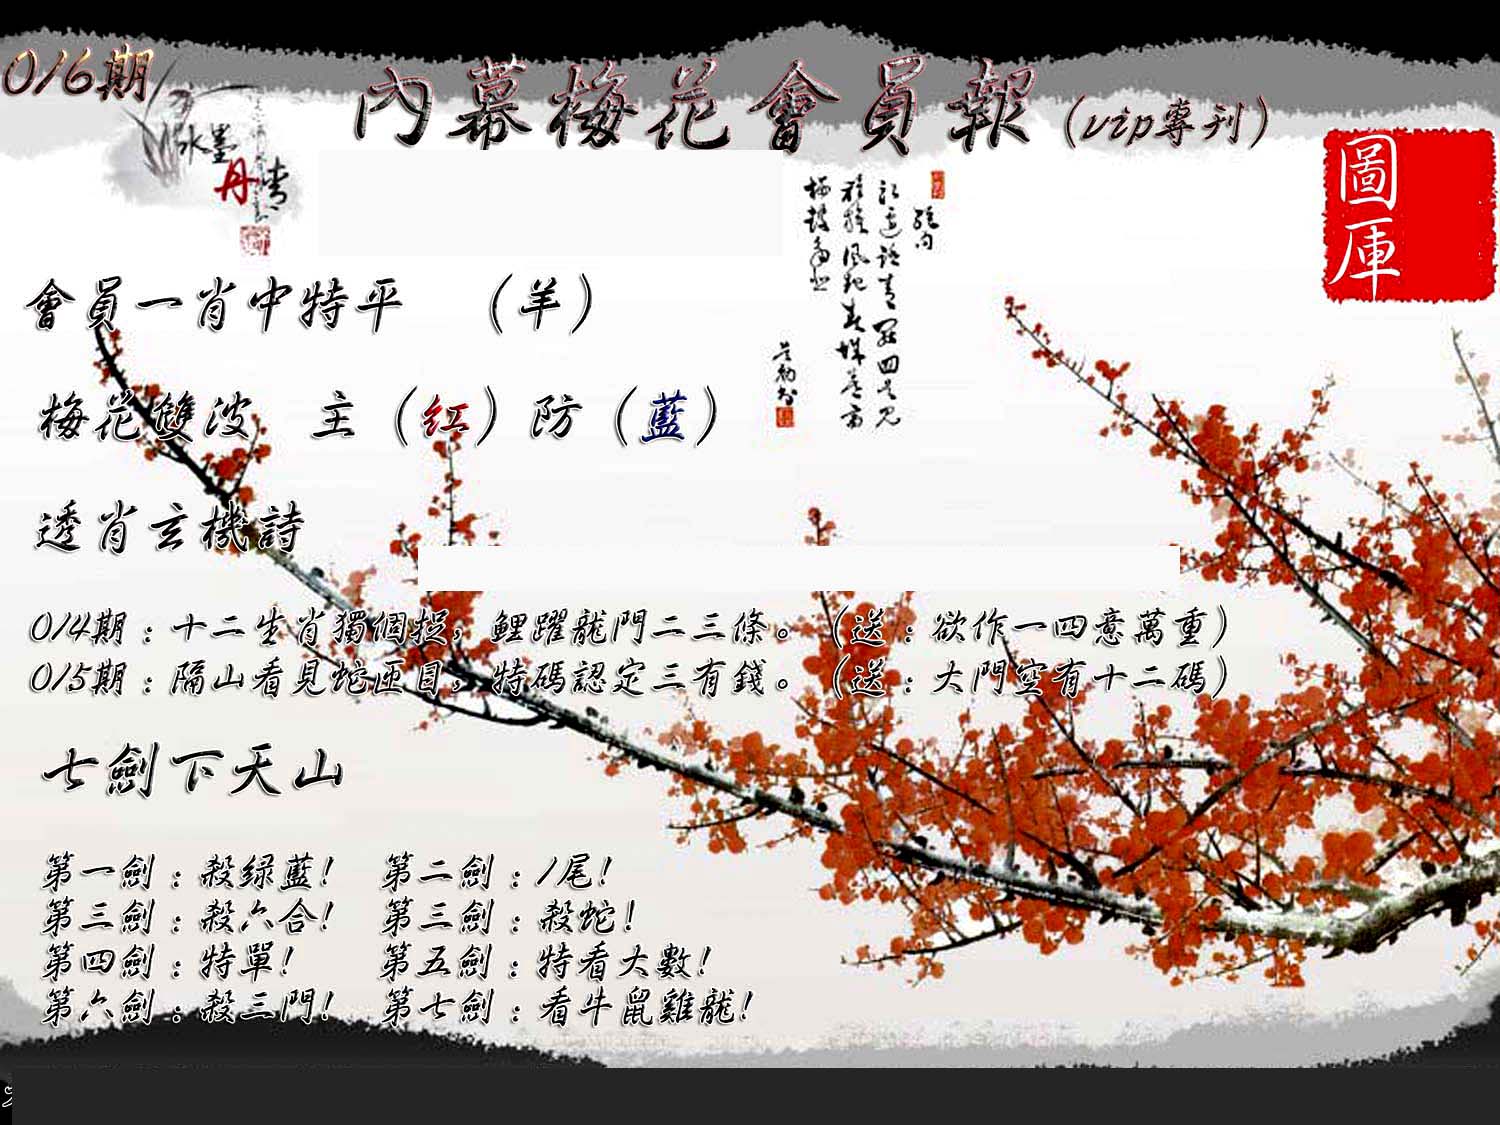 016期
內幕梅花會員報(vip專刊)
水墨
丹青
圖庫
會員一肖中特平 (羊)
梅花雙波 主(紅)防(藍)
透肖玄機詩
014期:十二生肖獨個捉,鯉躍龍門二三條。(送:欲作一四意萬重)
015期:隔山看見蛇匝目,特碼認定三有錢。(送:大門空有十二碼)
七劍下天山
第一劍:殺绿藍! 第二劍:1尾!
第三劍:殺六合! 第三劍:殺蛇!
第四劍:特單! 第五劍:特看大數!
第六劍:殺三門! 第七劍:看牛鼠雞龍!